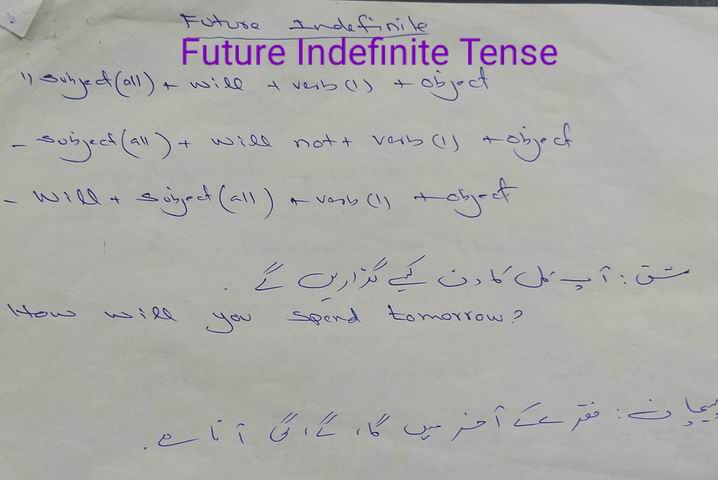 Future Indefinite
Future Indefinite Tense
1) Subject(all) + will + verb(1) + object
- Subject(all) + will not + verb(1) + object
- Will + Subject(all) + verb(1) + object
مشق: آپ کل کا دن کیسے گذاریں گے .
How will you spend tomorrow?
پہچان: فقرے کے آخر میں گا، گے، گی آتا ہے.